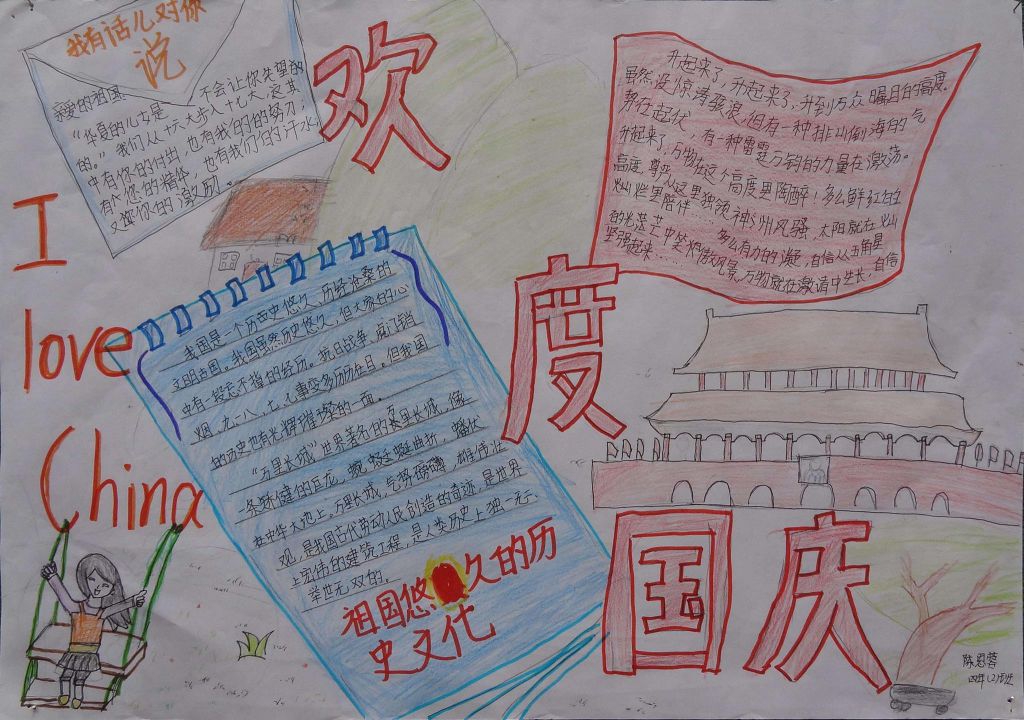 我有话儿对你
说
亲爱的祖国:
"华夏的儿女是 不会让你失望的
的。"我们从十六大步入十七大,这其
中有你的付出,也有我们的努力;
有"您"的精体,也有我们的汗水,
又饰你的激励。
欢
度
国庆
I
love
China
升起来了,升起来了,升到万众瞩目的高度。
虽然没惊涛骇浪,但有一种排山倒海的气
势在起伏,有一种雷霆万钧的力量在激荡。
升起来了,万物在这个高度里陶醉!多么鲜红的
高度,尊严从这里独领神州风骚,太阳就在灿
灿烂里陪伴……多么有力的凝,自信从五角星
的光芒中笑傲风景,万物就在激请中生长,自信
坚强起来……
我国是一个历史悠久、历经沧桑的
文明古国。我国虽然历史悠久,但大家的心
中有一段忘不掉的经历。抗日战争、虎门销
烟、九一八、七·七事变多历历在目。但我国
的历史也有光辉璀璨的一面。
"万里长城"世界著名的万里长城,像
一条矫健的巨龙,蜿蜒曲折,蟠伏
在中华大地上。万里长城,气势磅礴,雄伟壮
观,是我国古代劳动人民创造的奇迹,是世界
上宏伟的建筑工程,是人类历史上独一无二
举世无双的。
祖国悠久的历
史文化
陈思蓉
四年(2)班